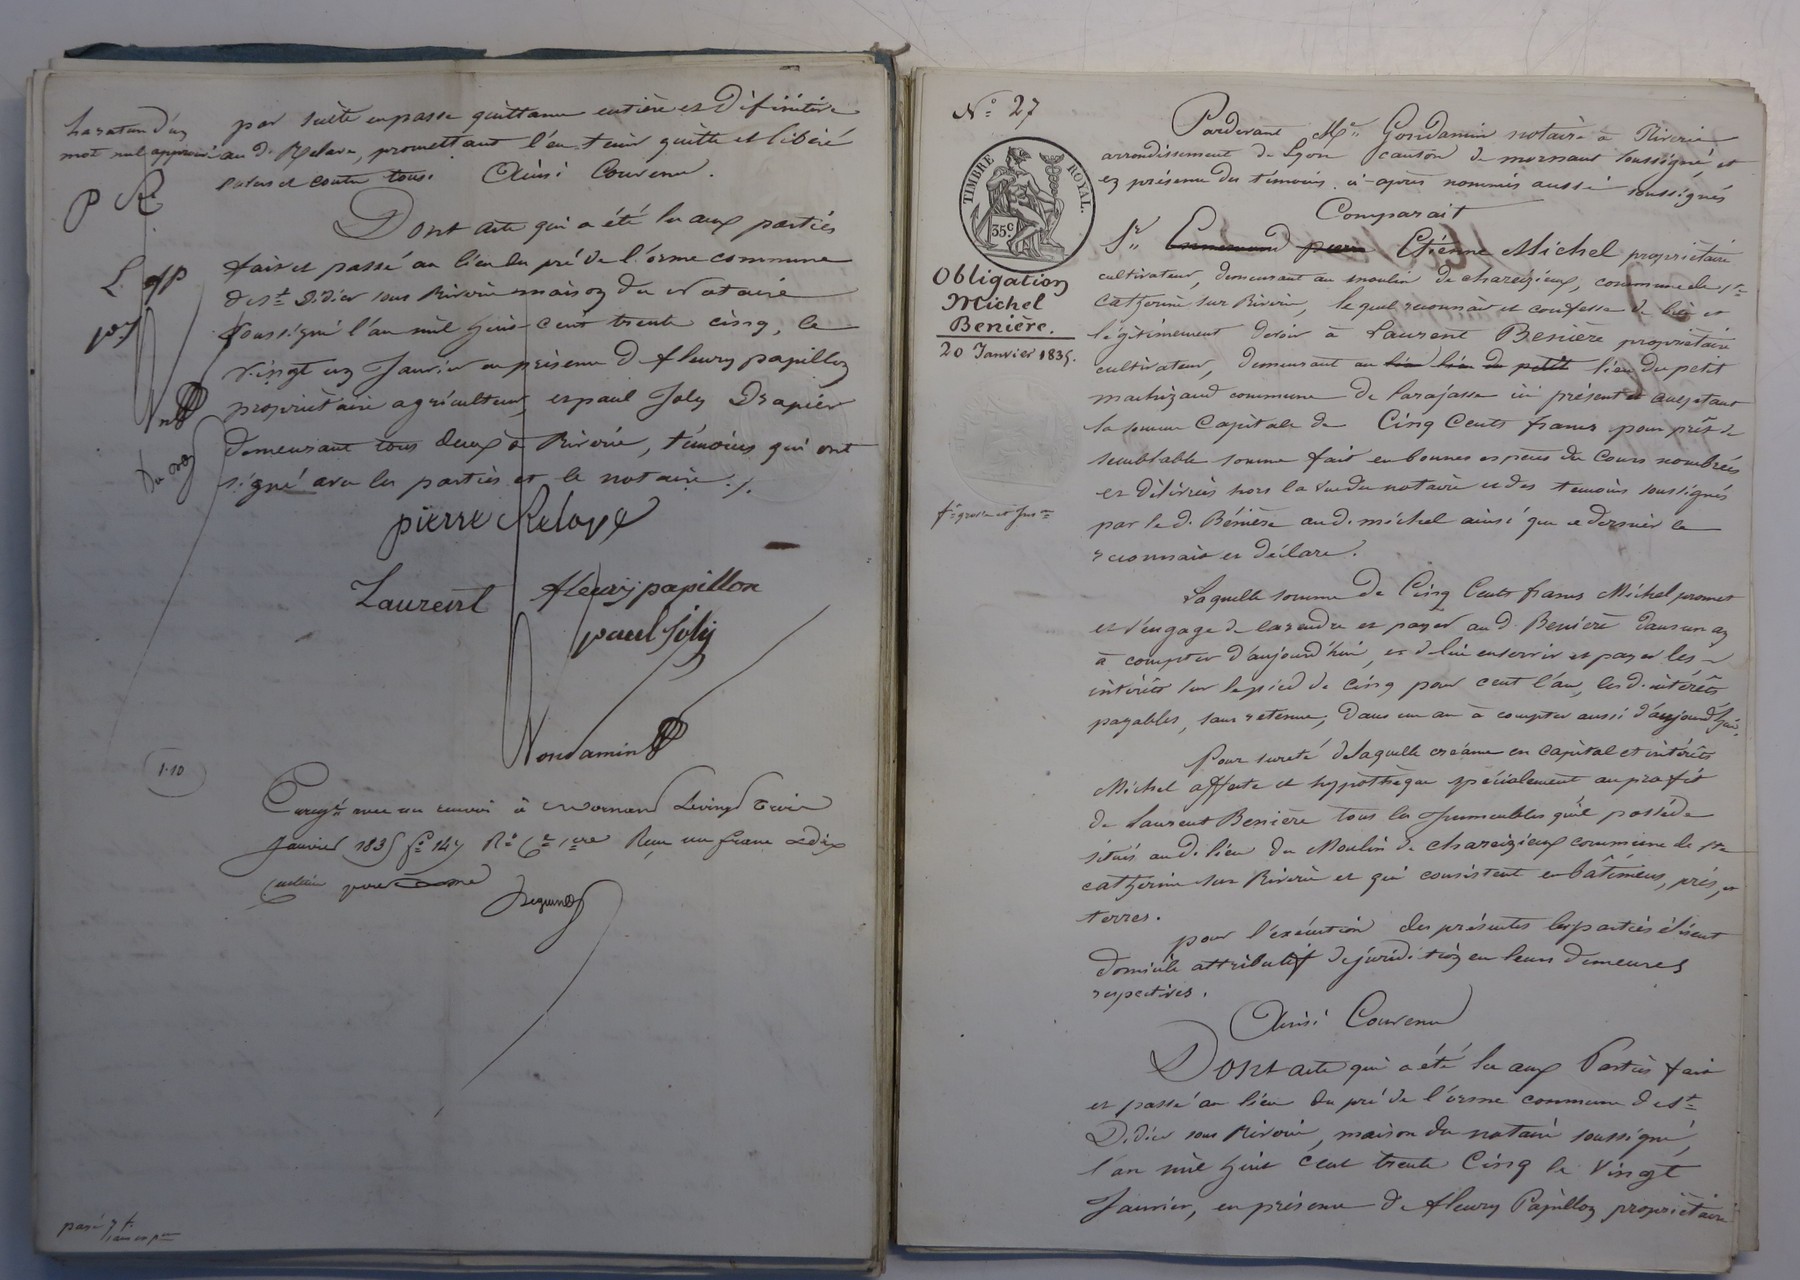 par suite en passe quittance entière et définitive
mot nul approuvé
au d. Relave, promettant l'en tenir quitte et libéré
envers et contre tous. Ainsi Convenu.
P R
Dont acte qui a été lu aux parties
fait et passé au lieu du pré de l'orme commune
L. P
de St. Didier sous Riverie maison du Notaire
soussigné l'an mil huit cent trente cinq, le
vingt un Janvier en présence de fleury papillon
propriétaire agriculteur, et paul Joly Drapier
demeurant tous deux à Riverie, témoins qui ont
signé avec les parties et le notaire ./.
pierre Relave
Laurent fleury papillon
paul Joly
Gondamin
1.10
Enregé avec un renvoi à Mornant le vingt trois
Janvier 1835 fo. 147 Ro. Ce. 1ere Reçu un franc & dix
centimes pour
No. 27
TIMBRE ROYAL.
35c.
Obligation
Michel
Benière.
20 Janvier 1835.
fe. grosse et
Pardevant Me. Gondamin notaire à Riverie
arrondissement de Lyon canton de mornant soussigné, et
en présence des témoins ci-après nommés aussi soussignés
Comparait
Sr. Etienne Michel propriétaire
cultivateur, demeurant au moulin de chareizieux, commune de Ste.
Catherine sur Riverie, lequel reconnait et confesse de bien et
légitimement devoir à Laurent Benière propriétaire
cultivateur, demeurant au lieu lieu du petit lieu du petit
machizaud commune de Larajasse ici présent et acceptant
la somme Capitale de Cinq Cents francs pour prêt de
semblable somme fait en bonnes espèces du Cours nombrées
et délivrées hors la vue du notaire et des temoins soussignés
par le d. Bénière au d. michel ainsi que ce dernier le
reconnait et déclare.
Laquelle somme de Cinq Cents francs Michel promet
et s'engage de la rendre et payer au d. Benière dans un an
à compter d'aujourd'hui, et de lui en servir et payer les
intérêts sur le pied de cinq pour cent l'an, les d. intérêts
payables, sans retenue, dans un an à compter aussi d'aujourd'hui,
Pour sureté de laquelle créance en capital et intérêts
Michel affecte et hypothèque spécialement au profit
de Laurent Benière tous les Immeubles qu'il possède
situés au d. lieu du Moulin de chareizieux commune de Ste.
catherine sur Riverie et qui consistent en bâtimens, prés, et
terres.
pour l'exécution des présentes les parties élisent
domicile attributif de juridiction en leurs demeures
respectives.
Ainsi Convenu
Dont acte qui a été lu aux Parties fait
et passé au lieu du pré de l'orme commune de St.
Didier sous Riverie, maison du notaire soussigné,
l'an mil huit cent trente Cinq le vingt
Janvier, en présence de fleury Papillon propriétaire